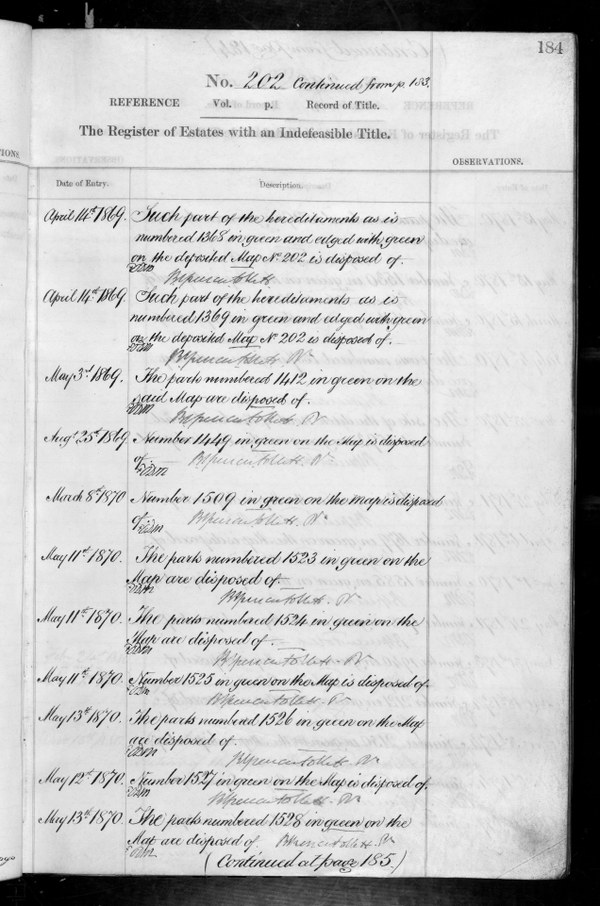 184
No. 202 Continued from p. 183.
REFERENCE Vol. p. Record of Title.
The Register of Estates with an Indefeasible Title.
IONS.
OBSERVATIONS.
Date of Entry. Description.
April 14th 1869. Such part of the hereditaments as is
numbered 1368 in green and edged with green
on the deposited Map No 202 is disposed of.
April 14th 1869. Such part of the hereditaments as is
numbered 1369 in green and edged with green
on the deposited Map No 202 is disposed of.
May 3rd 1869. The parts numbered 1412 in green on the
said Map are disposed of.
Augt 25th 1869 Number 1449 in green on the Map is disposed
of.
March 8th 1870 Number 1509 in green on the Map is disposed
of.
May 11th 1870. The parts numbered 1523 in green on the
Map are disposed of.
May 11th 1870. The parts numbered 1524 in green on the
Map are disposed of.
May 11th 1870. Number 1525 in green on the Map is disposed of.
May 13th 1870. The parts numbered 1526 in green on the Map
are disposed of.
May 12th 1870. Number 1527 in green on the Map is disposed of.
May 13th 1870. The parts numbered 1528 in green on the
Map are disposed of.
(Continued at page 185.)